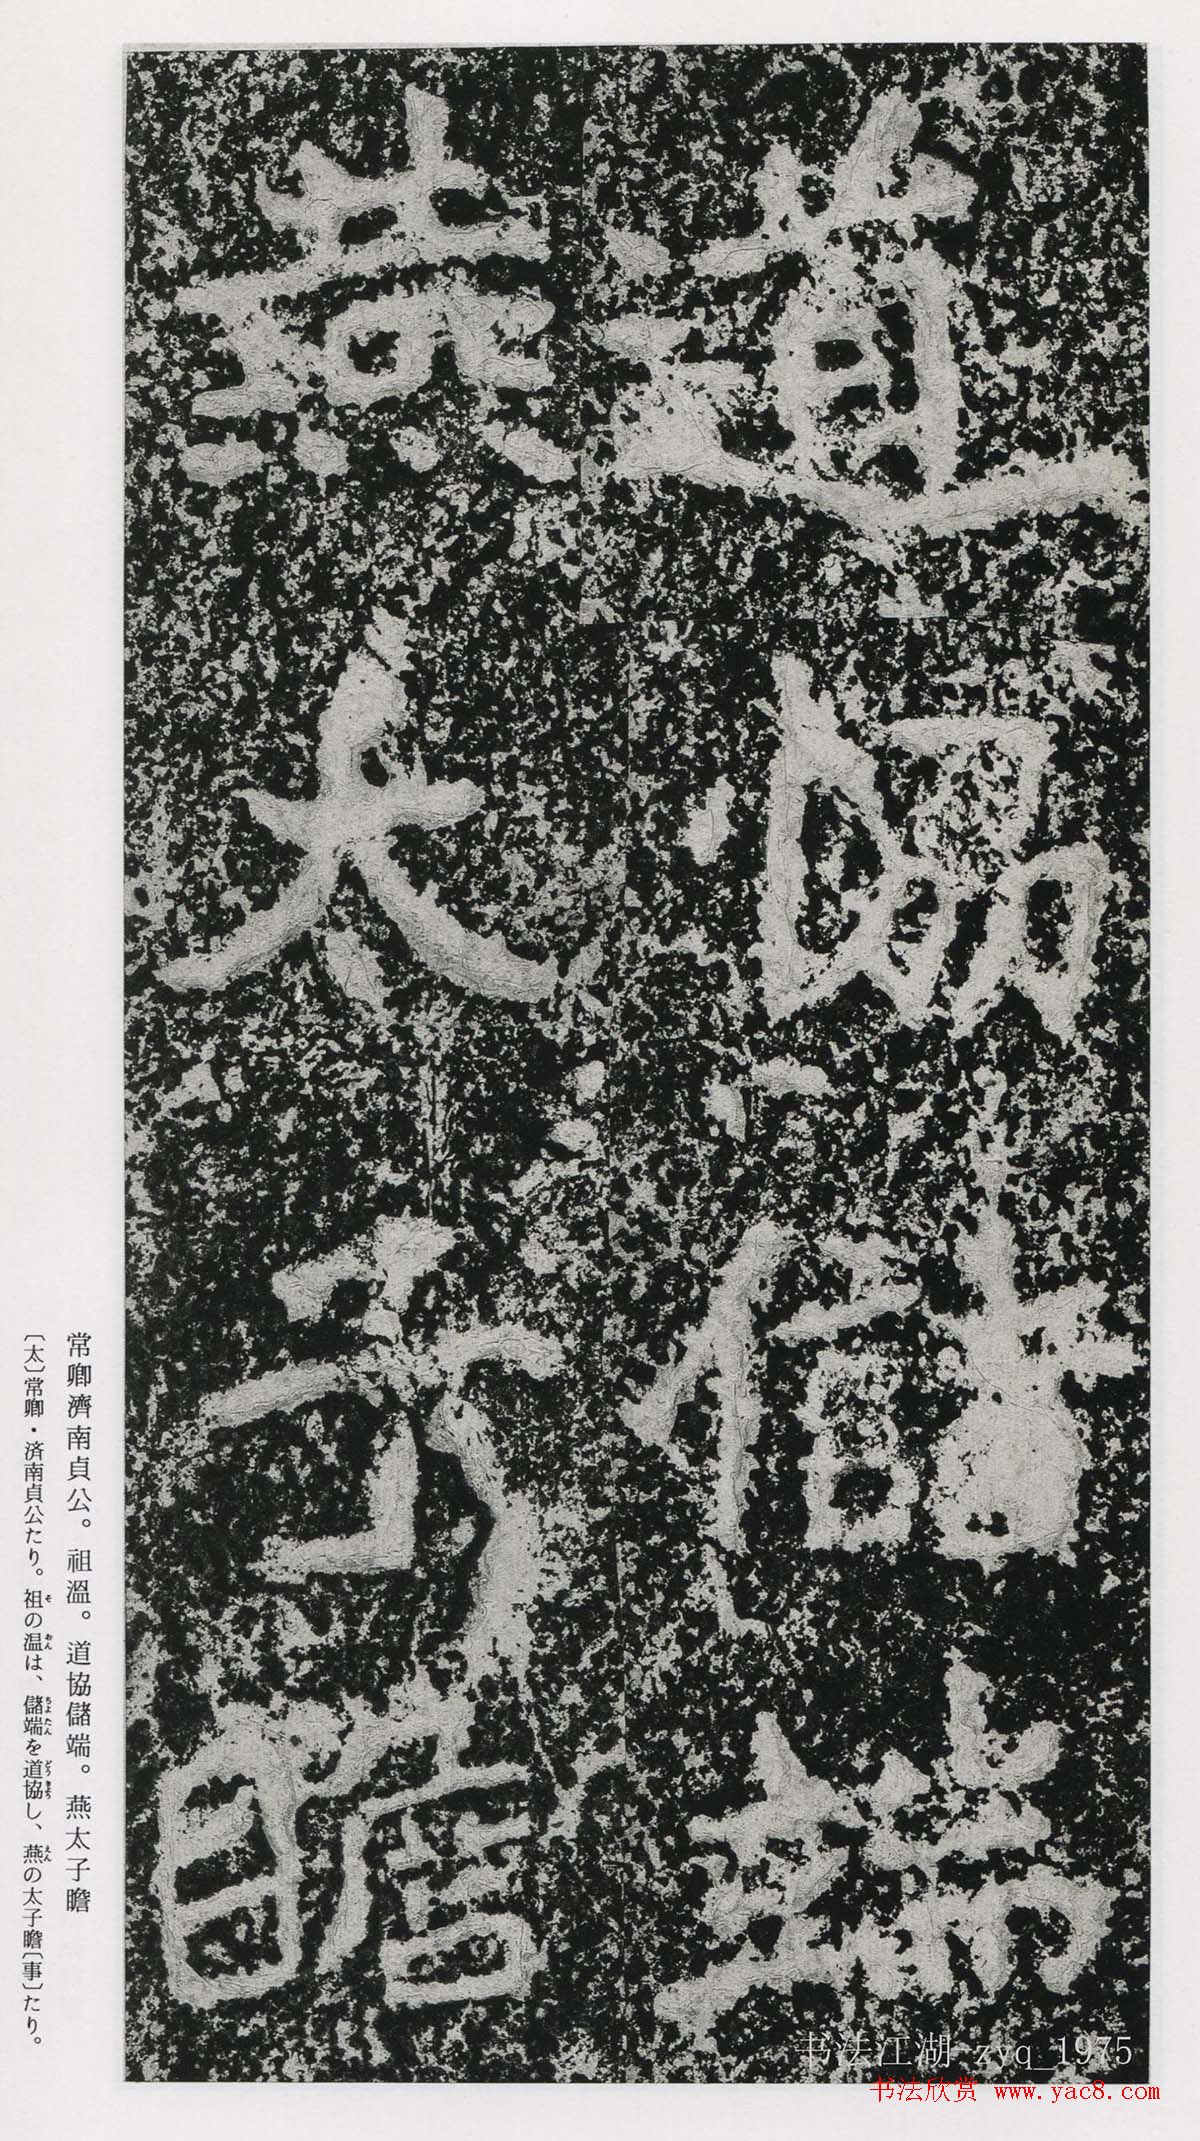 道協儲端
燕太子瞻
常卿濟南貞公。祖溫。道協儲端。燕太子瞻
〔太〕常卿・済南貞公たり。祖の温は、儲端を道協し、燕の太子瞻〔事〕たり。
书法江湖 zyq_1975
书法欣赏 www.yac8.com